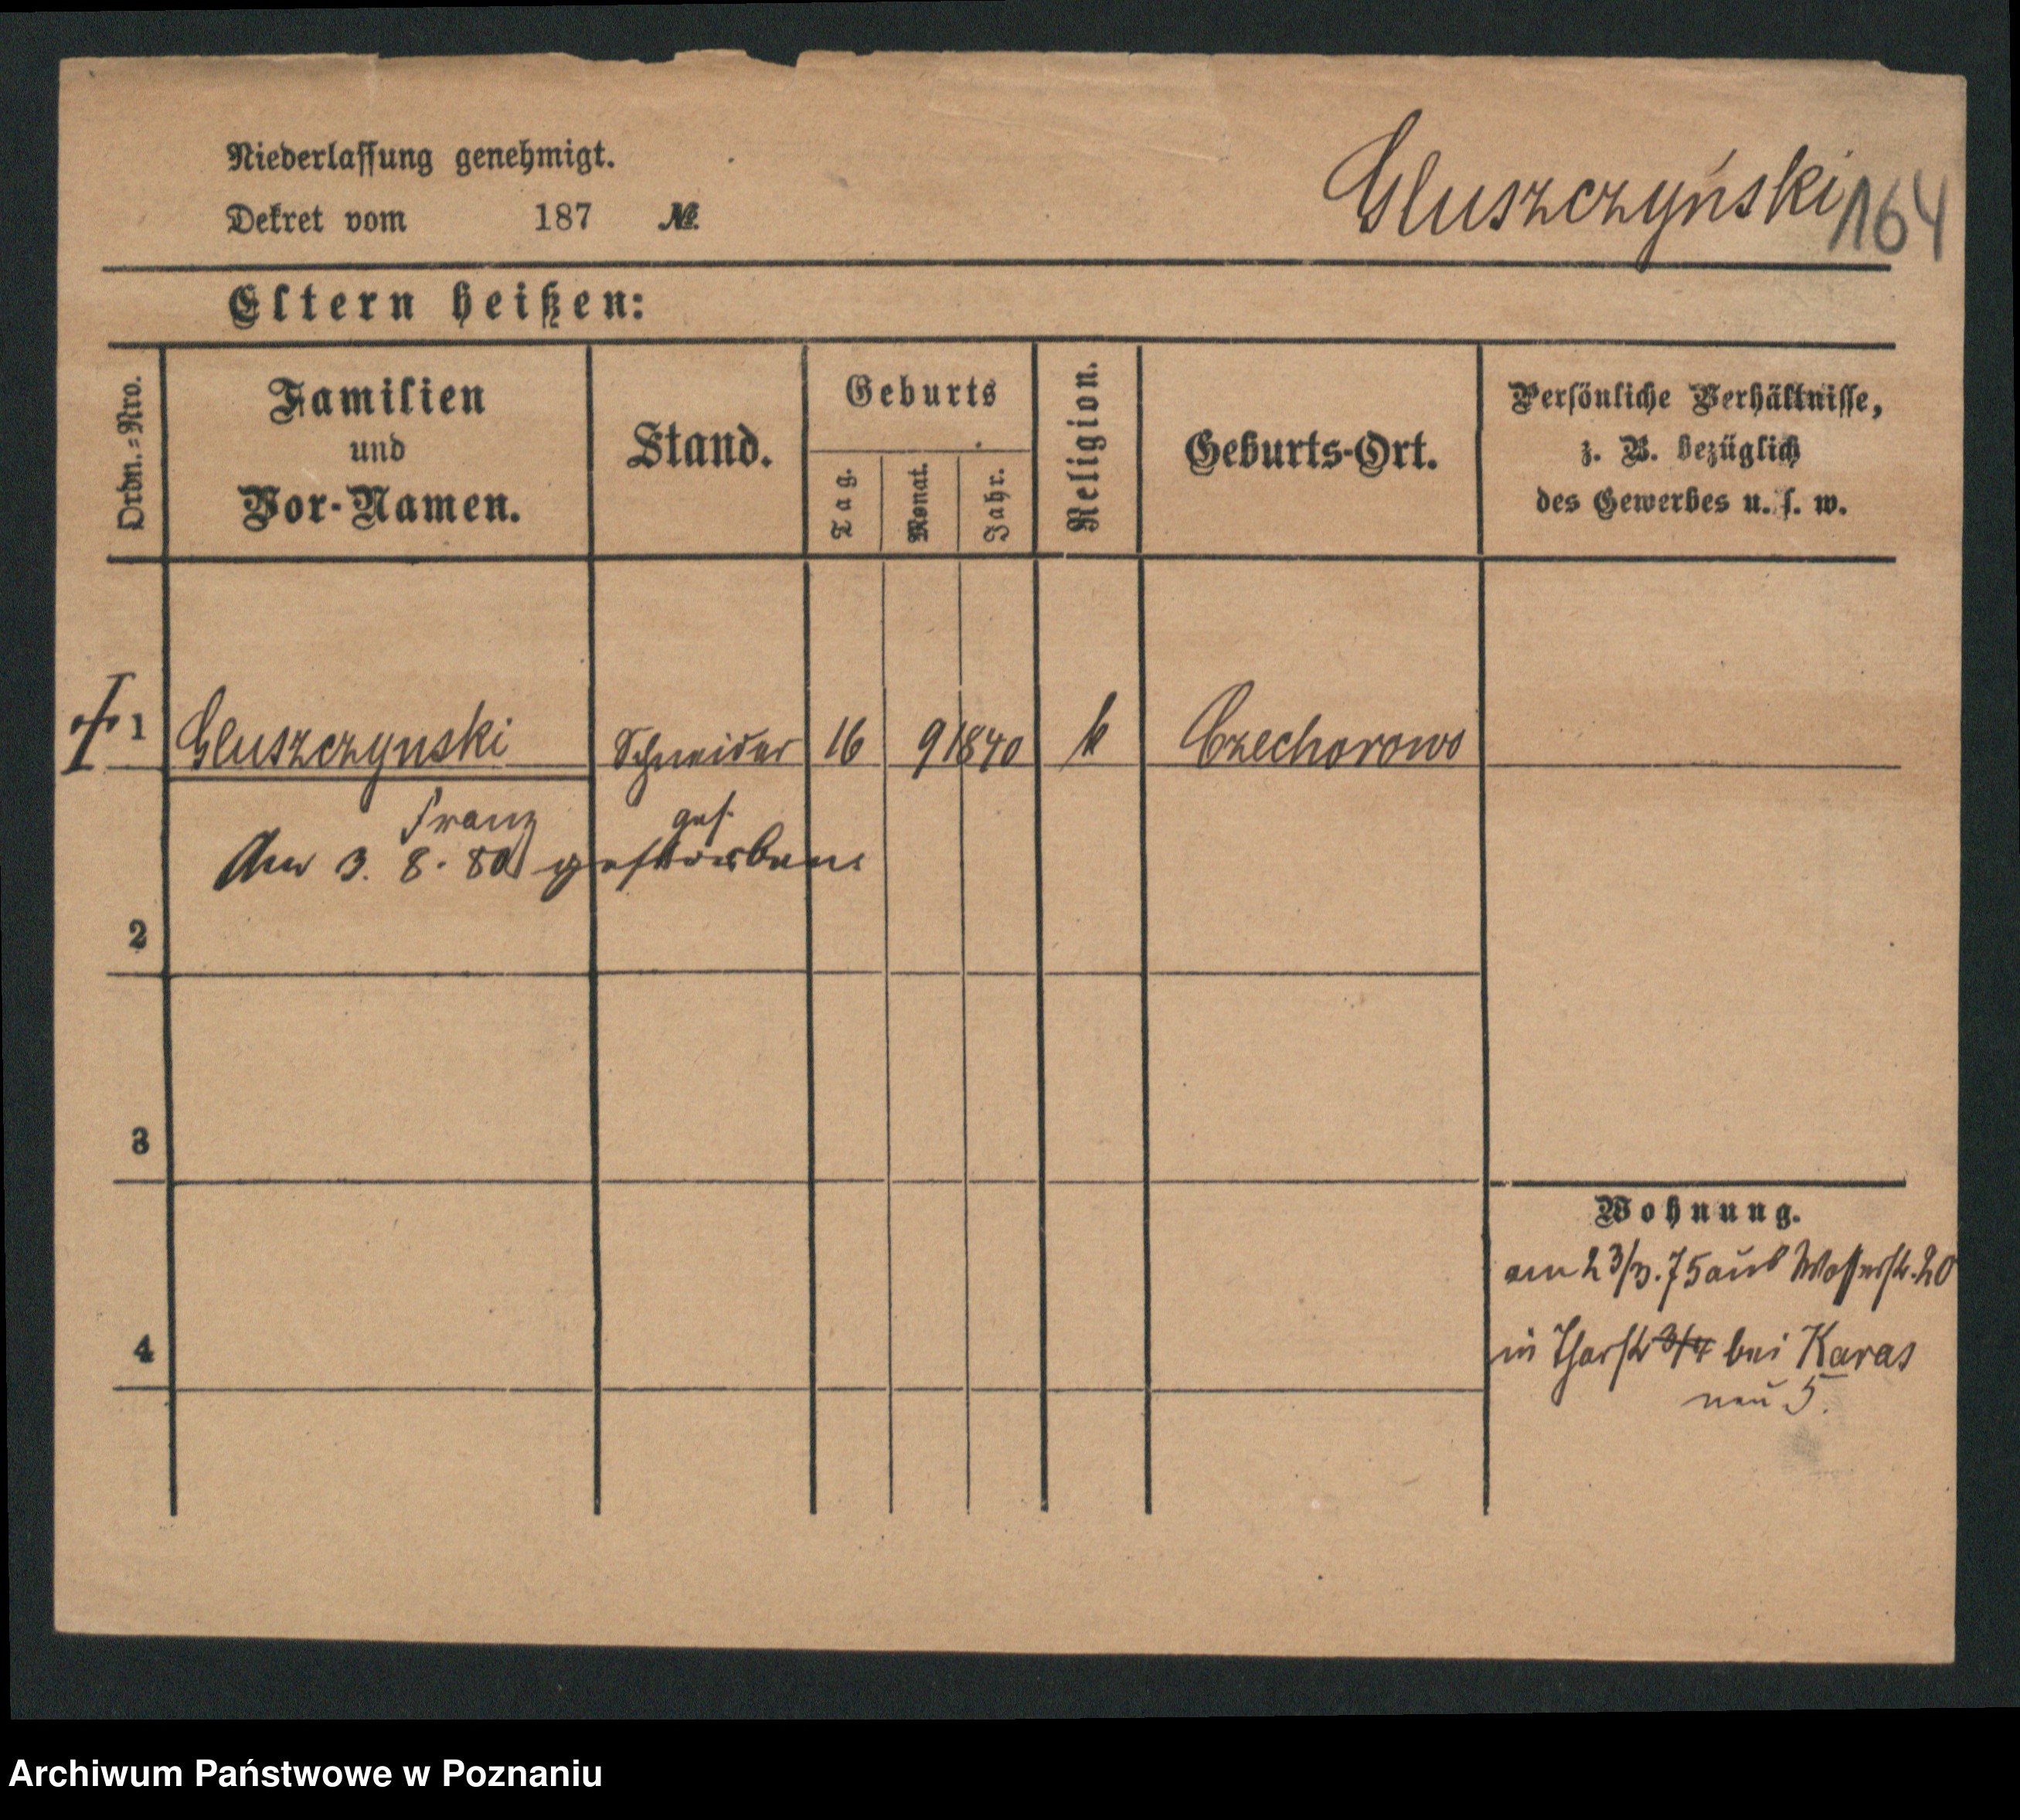 Niederlassung genehmigt.
Dekret vom 187 №
Gluszczyński 164
Eltern heißen:
Ordn.-Nro.
Familien
und
Vor-Namen.
Stand.
Geburts
Tag.
Monat.
Jahr.
Religion.
Geburts-Ort.
Persönliche Verhältnisse,
z. B. bezüglich
des Gewerbes u. s. w.
1 Gluszczynski Schneider 16 9 1840 k Czechorowo
Franz
Am 3. 8. 80 gestorben.
2
3
4
Wohnung.
am 23/3. 75 aus Wasserstr. 20
in Thorstr 3/4 bei Karas
neu 5.
Archiwum Państwowe w Poznaniu